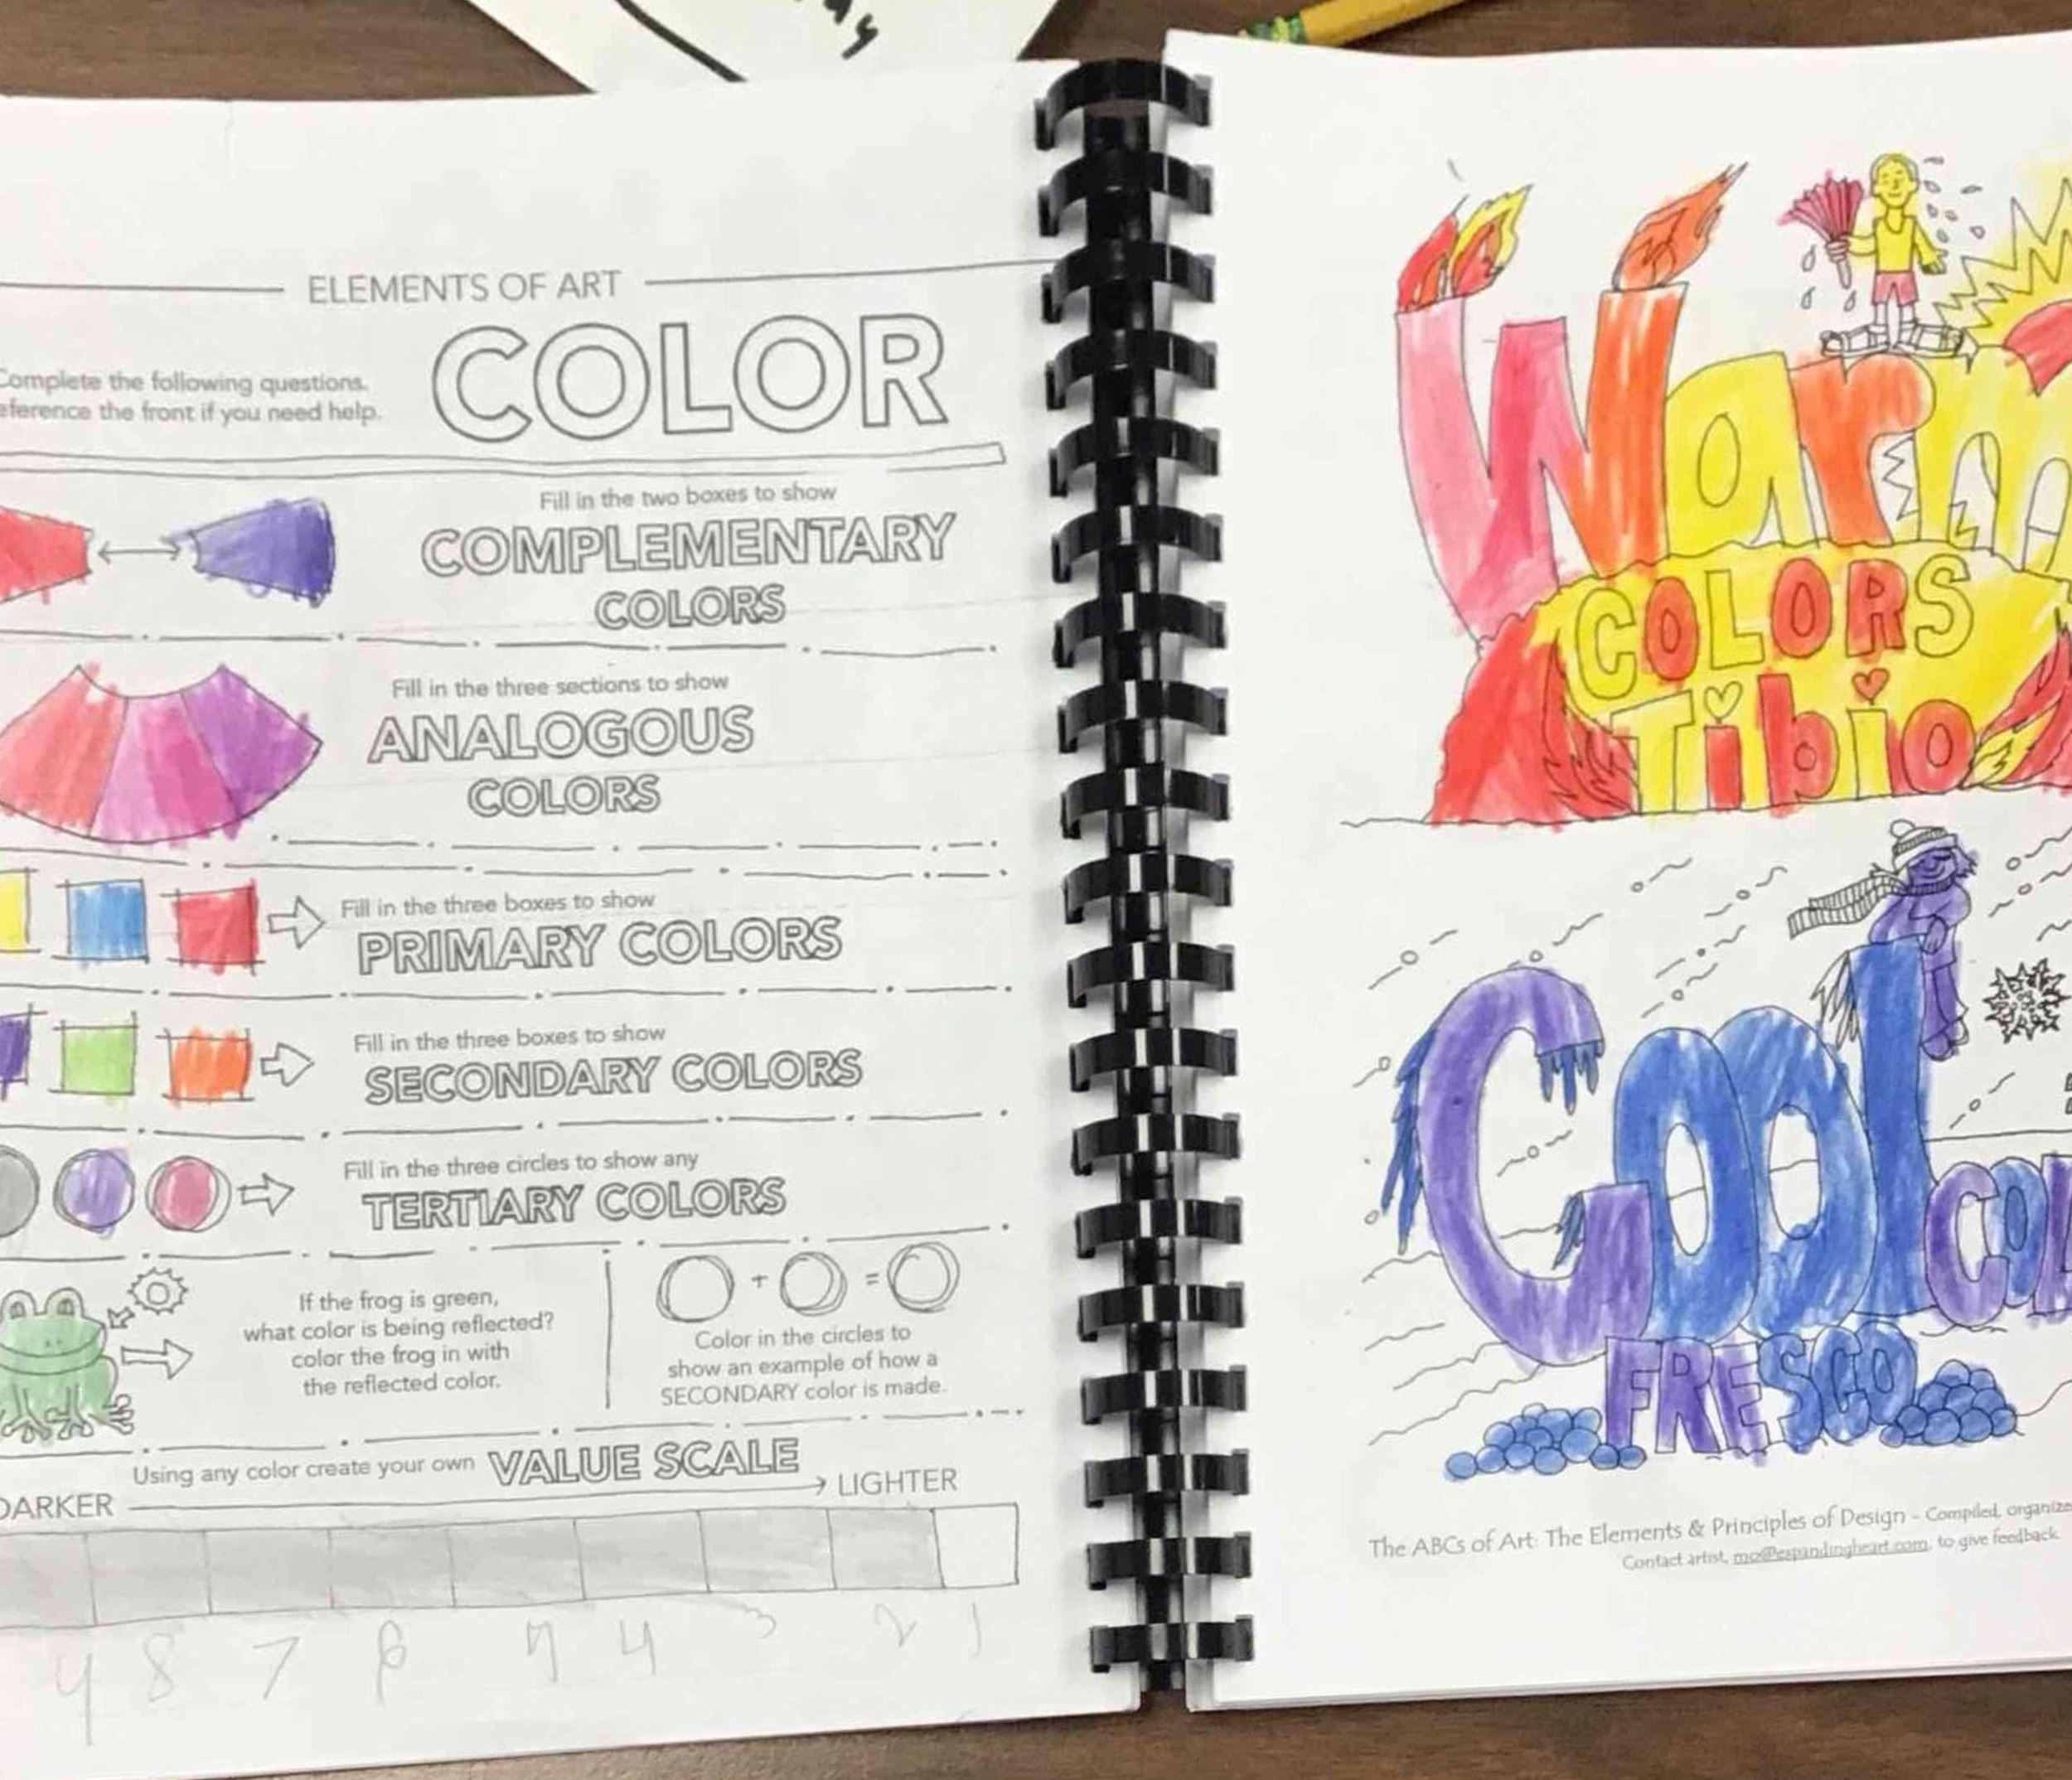 ELEMENTS OF ART
COLOR
Complete the following questions.
eference the front if you need help.
Fill in the two boxes to show
COMPLEMENTARY
COLORS
Fill in the three sections to show
ANALOGOUS
COLORS
Fill in the three boxes to show
PRIMARY COLORS
Fill in the three boxes to show
SECONDARY COLORS
Fill in the three circles to show any
TERTIARY COLORS
If the frog is green,
what color is being reflected?
color the frog in with
the reflected color.
+ =
Color in the circles to
show an example of how a
SECONDARY color is made.
Using any color create your own VALUE SCALE
DARKER LIGHTER
8 7 4 3 2 1
Warm
COLORS
Tibio
Cool COL
FRESCO
The ABCs of Art: The Elements & Principles of Design - Compiled, organize
Contact artist, mo@expandingheart.com, to give feedback